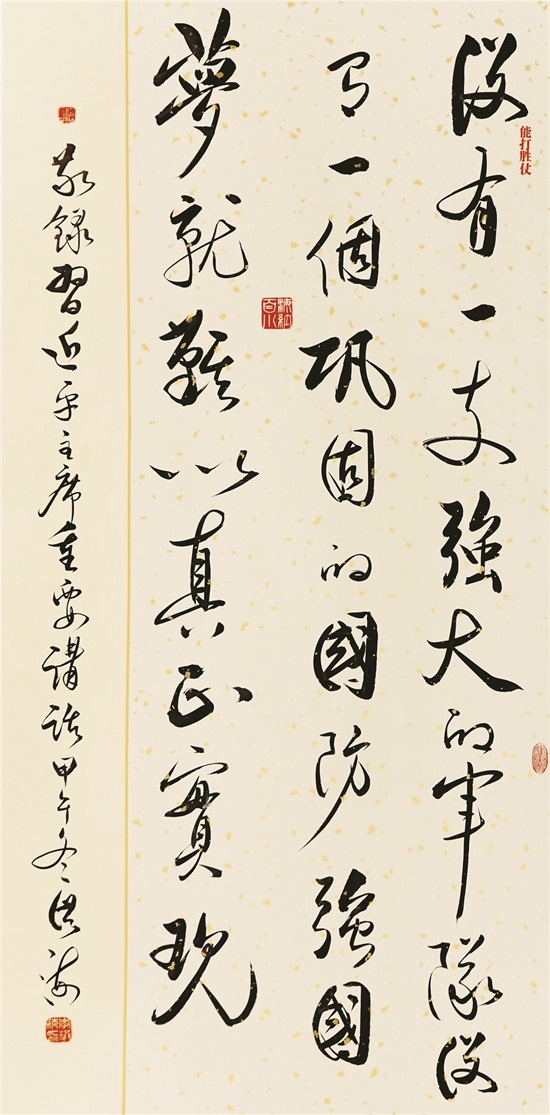 没有一支強大的軍隊没
能打胜仗
有一個巩固的國防強國
海納百川
夢就難以真正實現
敬録習近平主席重要講話甲午冬洪海